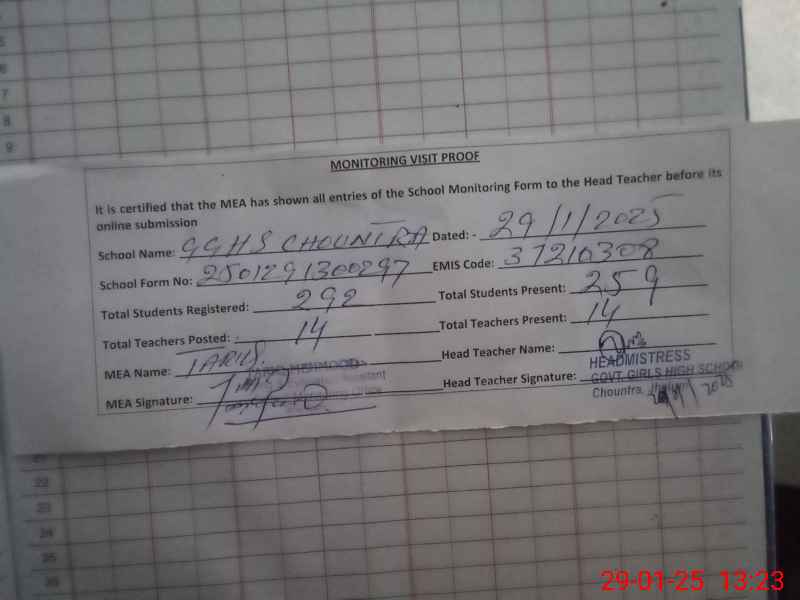 5
6
7
8
9
MONITORING VISIT PROOF
It is certified that the MEA has shown all entries of the School Monitoring Form to the Head Teacher before its
online submission
School Name: GGHS CHOUNTRA Dated: - 29/1/2025
School Form No: 2501291300297 EMIS Code: 37210308
Total Students Registered: 292 Total Students Present: 259
Total Teachers Posted: 14 Total Teachers Present: 14
MEA Name: TARIQ Head Teacher Name:
MEHMOOD
Assistant
HEADMISTRESS
MEA Signature: Head Teacher Signature: GOVT. GIRLS HIGH SCHOOL
Chountra,
22
23
24
25
26
29-01-25 13:23